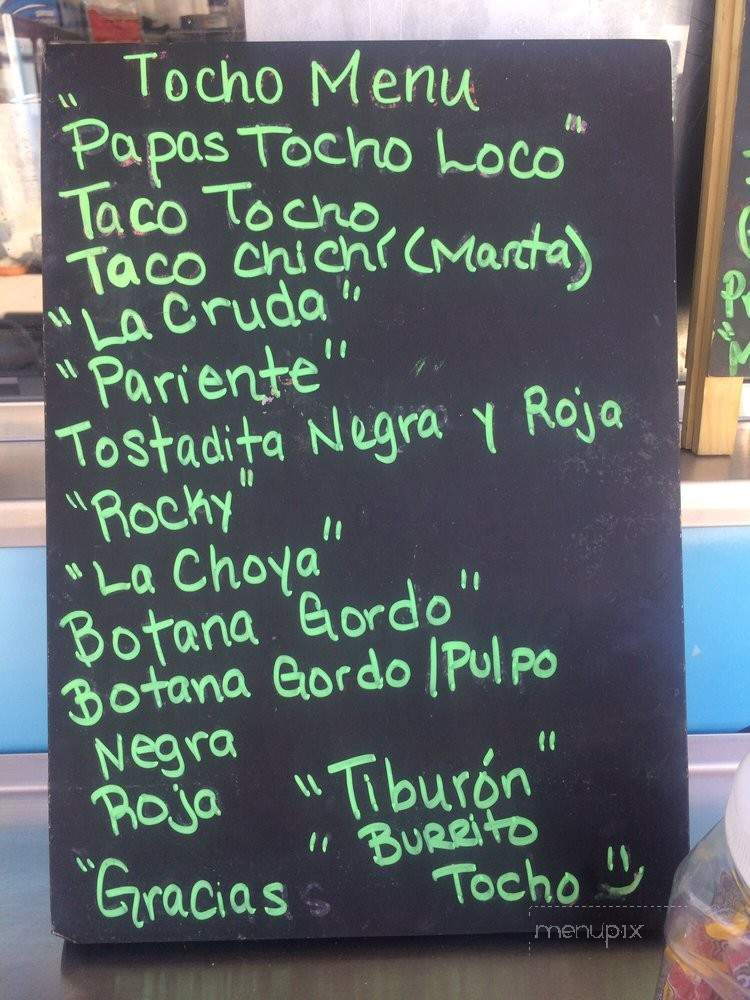 Tocho Menu
"Papas Tocho Loco"
Taco Tocho
Taco Chichí (Manta)
"La Cruda"
"Pariente"
Tostadita Negra y Roja
"Rocky"
"La Choya"
Botana Gordo"
Botana Gordo/Pulpo
Negra
Roja "Tiburón"
" Burrito
"Gracias Tocho "
menupix